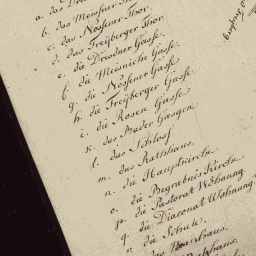 a. das
b. das Meissner Thor.
c. das Nossener Thor.
d. das Freyberger Thor.
e. die Dresdner Gasse.
f. die Meisniche Gasse.
g. die Nossener Gasse
h. die Freyberger Gasse.
i. die Rosen Gasse
k. das Bader Gasgen
l. das Schloss
m. das Rathhaus.
n. die Hauptkirche
o. die Begräbnis Kirche
p. die Pastorat Wohnung
q. die Diaconat Wohnung
r. die Schule.